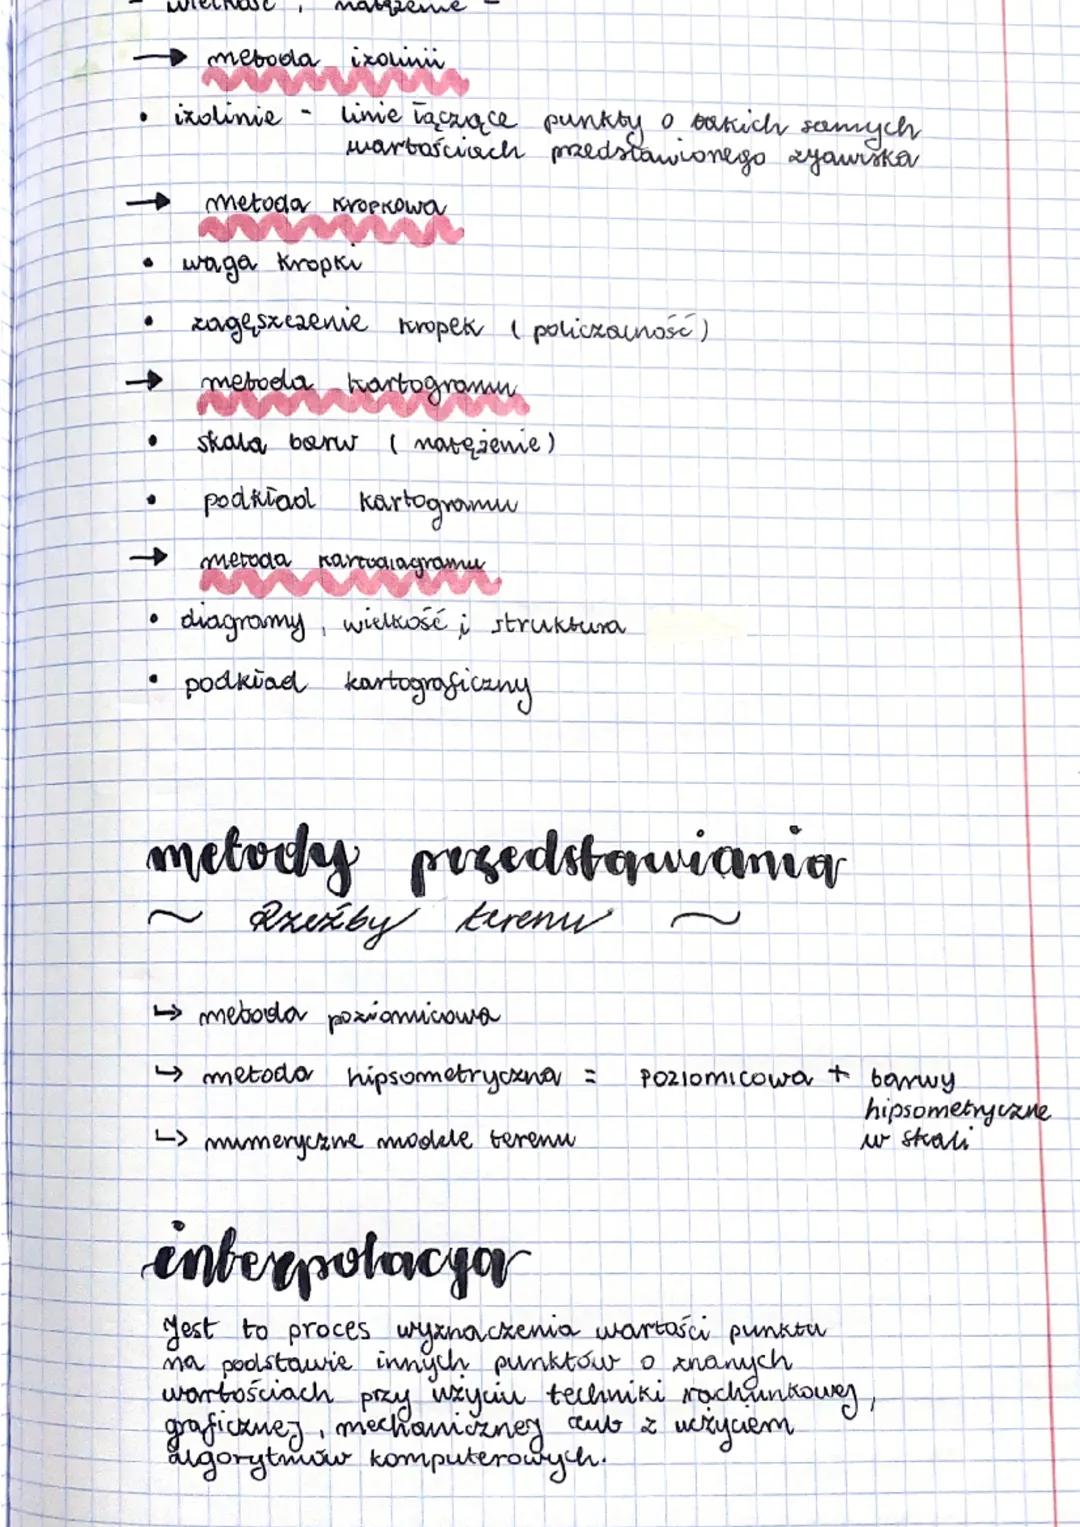 - wielkość, natężenie -
→ metoda izolinii
• izolinie - linie łączące punkty o takich samych
wartościach przedstawionego zjawiska
→ metoda kropkowa
• waga kropki
• zagęszczenie kropek (policzalność)
→ metoda kartogramu
• skala barw (natężenie)
• podkład kartogramu
→ metoda kartodiagramu
• diagramy, wielkość i struktura
• podkład kartograficzny
metody przedstawiania
~ Rzeźby terenu ~
↪ metoda poziomicowa
↪ metoda hipsometryczna = poziomicowa + barwy
hipsometryczne
w skali
↪ numeryczne modele terenu
interpolacja
Jest to proces wyznaczenia wartości punktu
na podstawie innych punktów o znanych
wartościach przy użyciu techniki rachunkowej,
graficznej, mechanicznej lub z użyciem
algorytmów komputerowych.